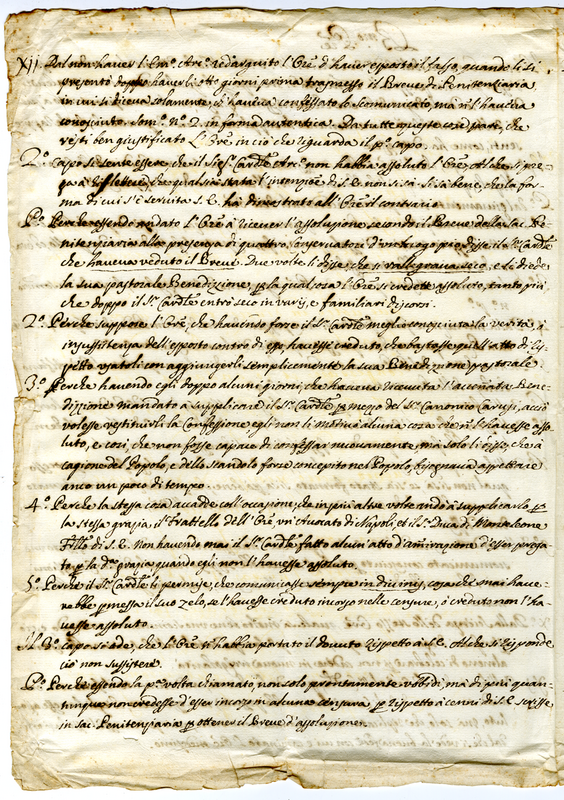 Xij Dal non haver l'Em.º Arc.º redarguito l'Ore d'haver esposto il falso, quando li si
presentò doppo haverli otto giorni prima trasmesso il Breve di Penitenziaria
in cui si diceva solamente, ch'haveva confessato lo scomunicato, ma non l'haveva
conosciuto. Som. n.º 2. in forma autentica. Da tutte queste cose pare, che
resti ben giustificato l'Ore in ciò che riguarda il p.º capo.
2.º capo si sente essere, che il Sig.r Card.le Arc.º non habbia assoluto l'Ore. Al che si pre-
ga à riflettere, che qual sia stata l'intenz.e di S.E. non si sà. Si sà bene, che la for-
ma di cui s'è servita S.E. hà dimostrato all'Ore il contrario
P.º Perche essendo andato l'Ore à ricever l'assoluzione secondo il Breve della Sac. Pe-
nitenziaria alla presenza di quattro Conservatori d'un luogo pio disse il S.r Card.le
che haveva veduto il Breve. Due volte li disse, che si rallegrava seco, e li diede
la sua pastorale Benedizione, p la qual cosa l'Ore si credette assoluto, tanto più
che doppo il S.r Card.le entrò seco in varij, e familiari discorsi.
2.º Perche suppose l'Ore, che havendo forse il S.r Card.le meglio conosciuta la verità, ò
insussistenza dell'esposto contro di esso havesse creduto, che bastasse quell'atto di ris-
petto usatoli con aggiungerli semplicemente la sua Benedizione pastorale.
3.º Perche havendo egli doppo alcuni giorni, che haveva ricevuta l'accennata Bene-
dizzione mandato à supplicare il S.r Card.le p mezzo del S.r Canonico Carusi, acciò
volesse restituirli la Confessione egli non li motivò alcuna cosa che non l'havesse asso-
luto, e così, che non fosse capace di confessar nuovamente, ma solo li disse, che à
cagione del Popolo, e dello scandolo forse concepito nel Popolo, bisognava aspettare
anco un poco di tempo.
4.º Perche la stessa cosa accadde coll'occasione, che in più altre volte andò à supplicarlo p
la stessa grazia il Frattello dell'Ore, un'Avocato di Napoli, et il S.r Duca di Monteleone
Fill.º di S.E. Non havendo mai il S.r Card.le fatto alcun'atto d'amirazione d'esser prega-
to p la d.ª grazia quando egli non l'havesse assoluto.
5.º Perche il S.r Card.le li permise, che comunicasse sempre in divinis, cosa che mai have-
rebbe pmessa il suo zelo, se l'havesse creduto incorso nelle censure, ò creduto non l'ha-
vesse assoluto.
Il 3.º capo si ode, che l'Ore non habbia portato il dovuto rispetto à S.E. Al che si risponde
ciò non sussistere.
P.º Perche essendo la p.ª volta chiamato, non solo prontamente ubbidì, mà di più quan-
tunque non credesse d'esser incorso in alcuna censura p rispetto à cenni di S.E. scrisse
in sac. Penitenziaria p ottener il Breve d'assoluzione.